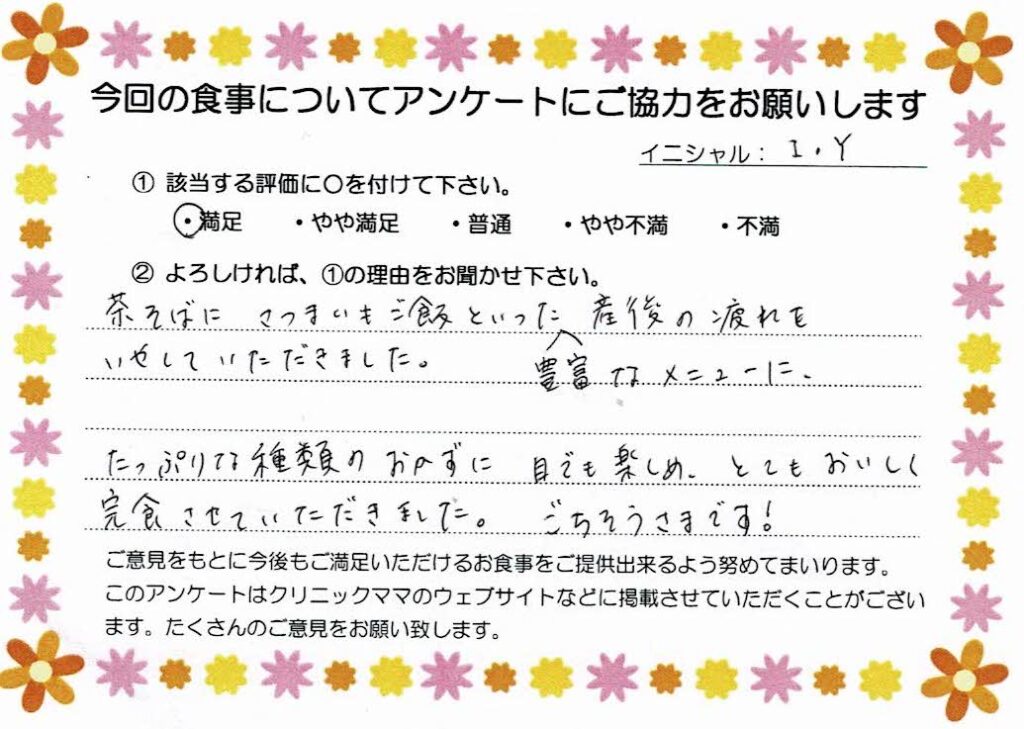 今回の食事についてアンケートにご協力をお願いします
イニシャル： I.Y
① 該当する評価に〇を付けて下さい。
・満足 ・やや満足 ・普通 ・やや不満 ・不満
② よろしければ、①の理由をお聞かせ下さい。
茶そばに さつまいもご飯といった 産後の疲れを
いやしていただきました。 豊富なメニューに、
たっぷりな種類のおかずに 目でも楽しめ、とてもおいしく
完食させていただきました。 ごちそうさまです！
ご意見をもとに今後もご満足いただけるお食事をご提供出来るよう努めてまいります。
このアンケートはクリニックママのウェブサイトなどに掲載させていただくことがござい
ます。たくさんのご意見をお願い致します。